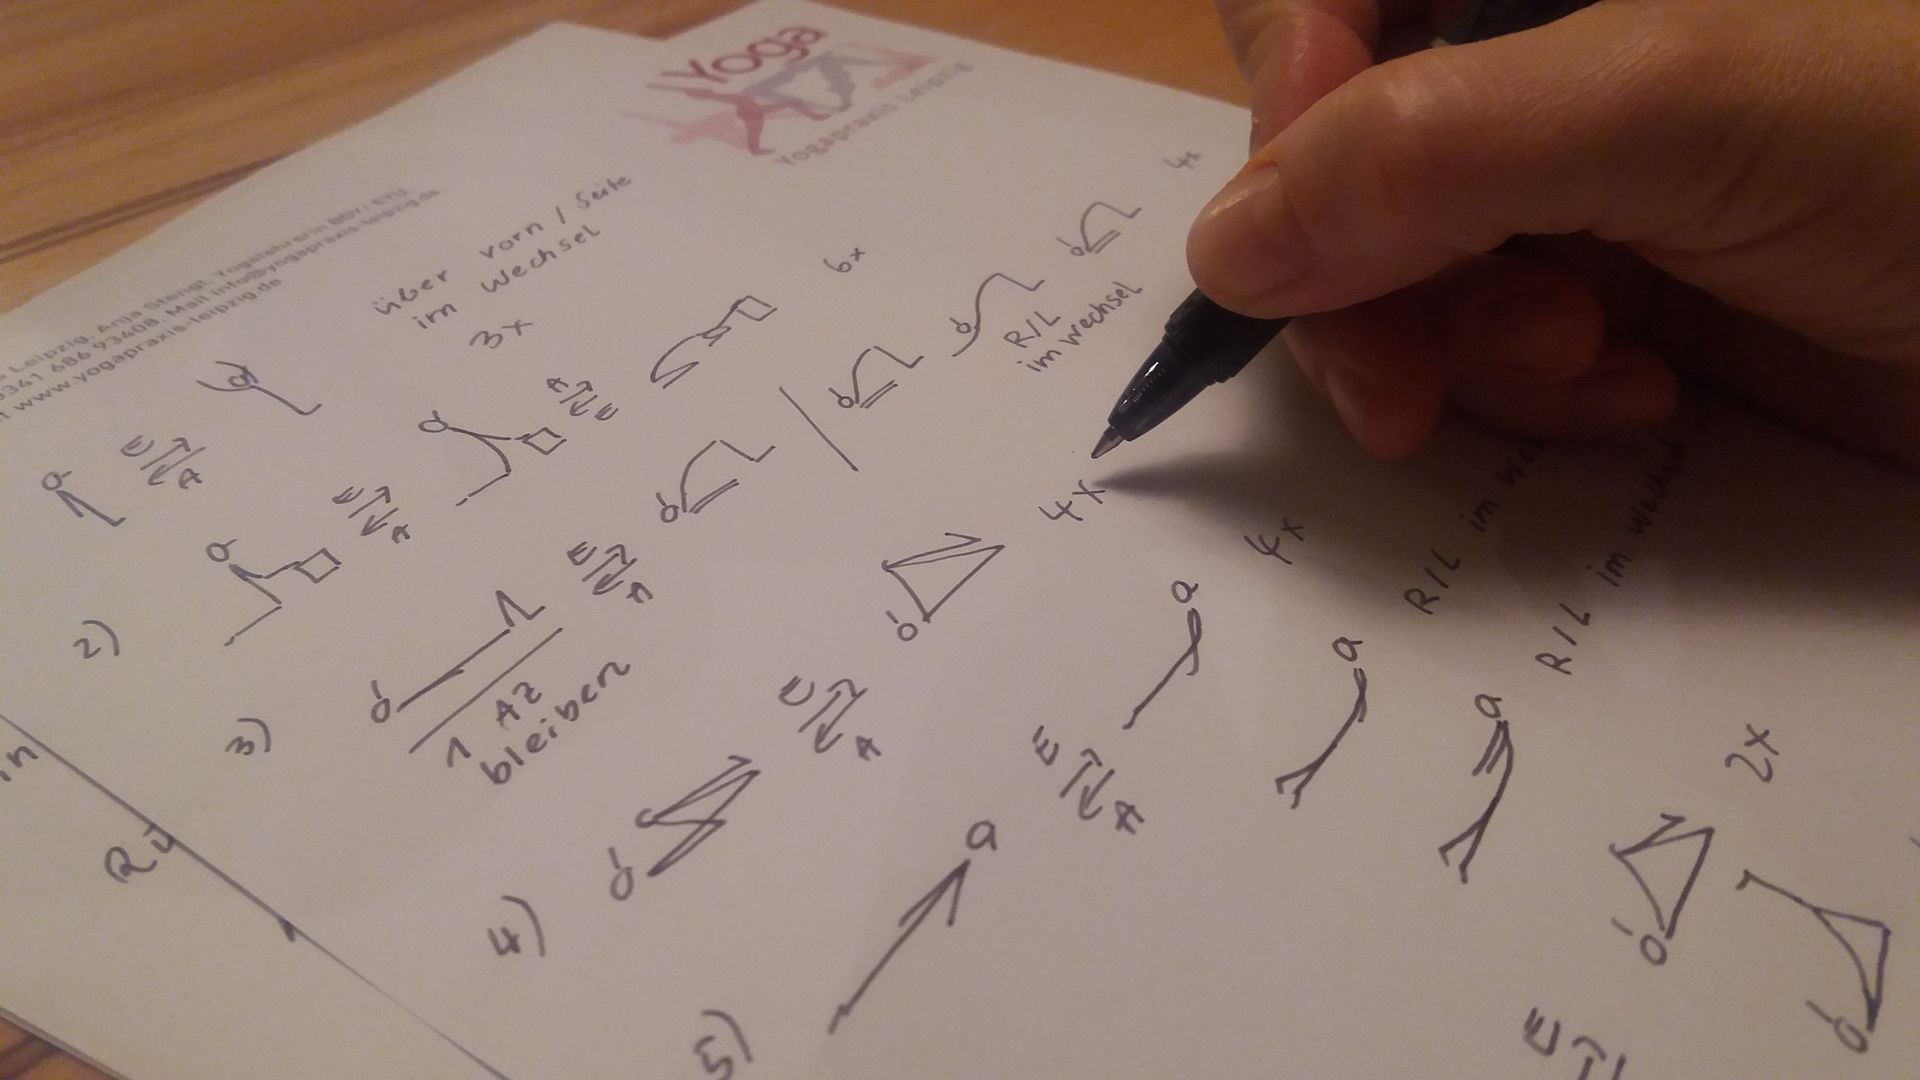 Yoga
Yogapraxis Leipzig
Leipzig, Anja Stengl, Yogalehrerin BDY/EYU,
0341 686 93408, Mail info@yogapraxis-leipzig.de
www.yogapraxis-leipzig.de
über vorn / Seite
im Wechsel
3x
E
A
2)
E
A
A
E
6x
3)
1 AZ
bleiben
E
A
R/L
im Wechsel
4x
4)
E
A
4x
5)
E
A
4x
R/L im
R/L im Wechsel
2x
E